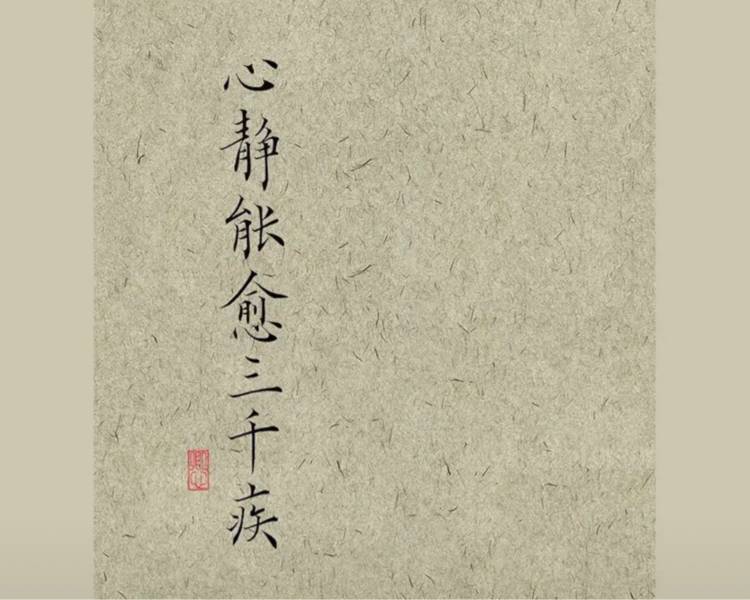 心静能愈三千疾